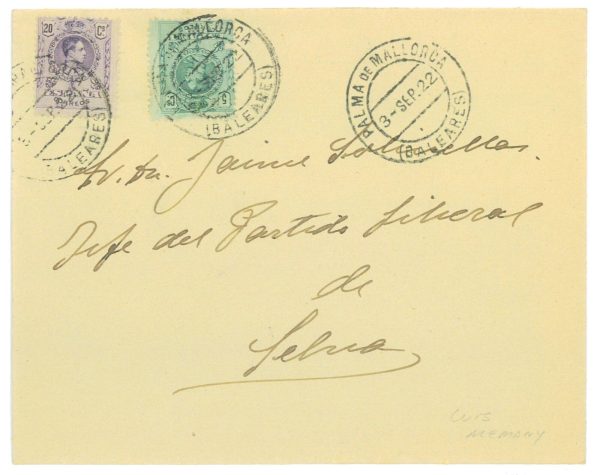 20 Cs
CORREOS
5 Cs
MALLORCA
(BALEARES)
PALMA DE MALLORCA
3-SEP.22
(BALEARES)
Sr. Dn. Jaime
Jefe del Partido Liberal
de
Selva
LUIS
ALEMANY